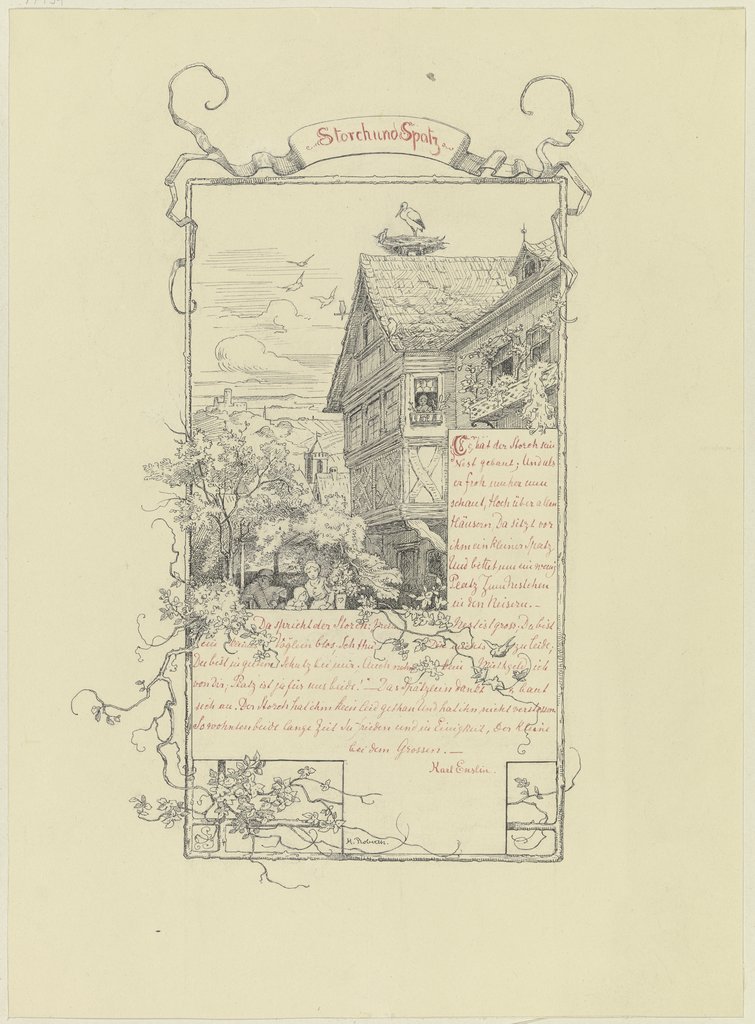 Storch und Spatz
Es hat der Storch sein
Nest gebaut; Und als
er froh umher nun
schaut, Hoch über allen
Häusern, Da sitzt vor
ihm ein kleiner Spatz
Und bittet um ein wenig
Platz Zum Nestchen
in den Reisern. —
Da spricht der Storch: Nest ist gross. Du bist
Vöglein blos, Ich thu nichts zu leide;
Du bist in gutem Schutz bei mir. Auch ich
von dir, Platz ist ja für uns beide!" — Das Spätzlein dankt baut
sich an. Der Storch hat ihm kein Leid gethan Und hat ihn nicht verstossen
So wohnten beide lange Zeit In Frieden und in Einigkeit, Der Kleine
bei dem Grossen. —
Karl Enslin.